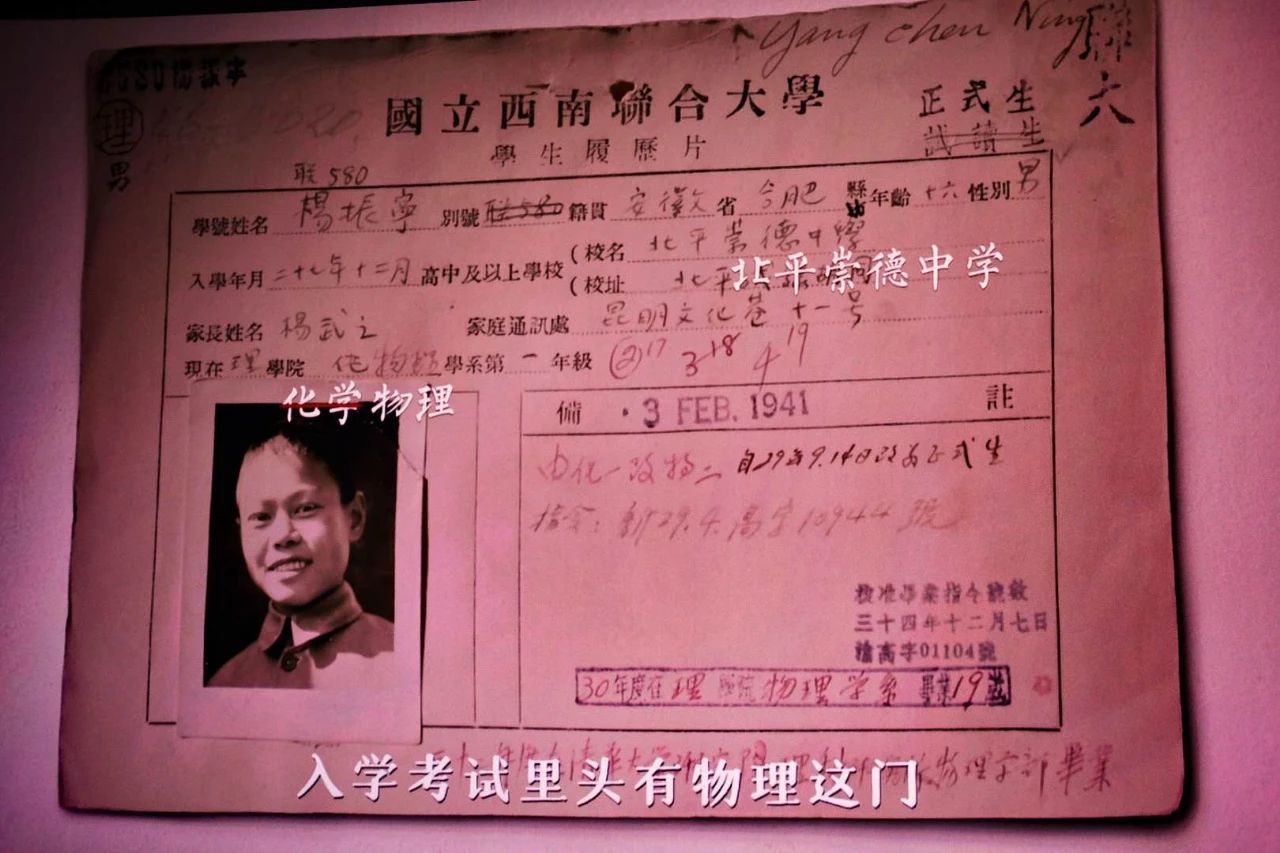 Yang Chen Ning
聯六
理
男
國立西南聯合大學
正式生
學生履歷片
試讀生
联580
學號姓名 楊振寧 別號 联580 籍貫 安徽 省 合肥 縣市 年齡 十六 性別 男
入學年月 二十七年十二月 高中及以上學校 (校名 北平崇德中學
(校址 北平
北平崇德中学
家長姓名 楊武之 家庭通訊處 昆明文化巷十一号
現在 理 學院 化 物理 學系第 一 年級 ② 17 3 18 4 19
化学物理
備 註
3 FEB. 1941
由化一改物二 自29年9.14日改为正式生
指令: 29. 高字10944號
核准畢業指令號數
三十四年十二月七日
高字01104號
30年度在 理 學院 物理 学系 畢業 19
物理学部畢業
入学考试里头有物理这门